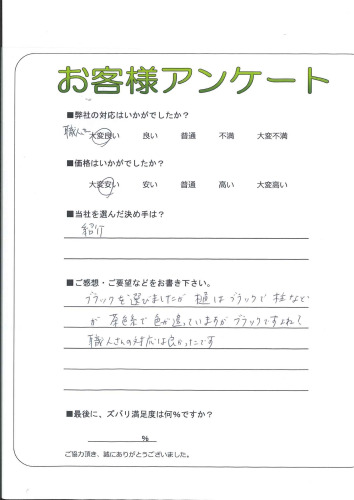 お客様アンケート
■弊社の対応はいかがでしたか？
職人さん 大変良い 良い 普通 不満 大変不満
■価格はいかがでしたか？
大変安い 安い 普通 高い 大変高い
■当社を選んだ決め手は？
紹介
■ご感想・ご要望などをお書き下さい。
ブラックを選びましたが 樋はブラックで 柱など
が 茶色系で色が違っていますがブラックですよね？
職人さんの対応は良かったです
■最後に、ズバリ満足度は何％ですか？
％
ご協力頂き、誠にありがとうございました。